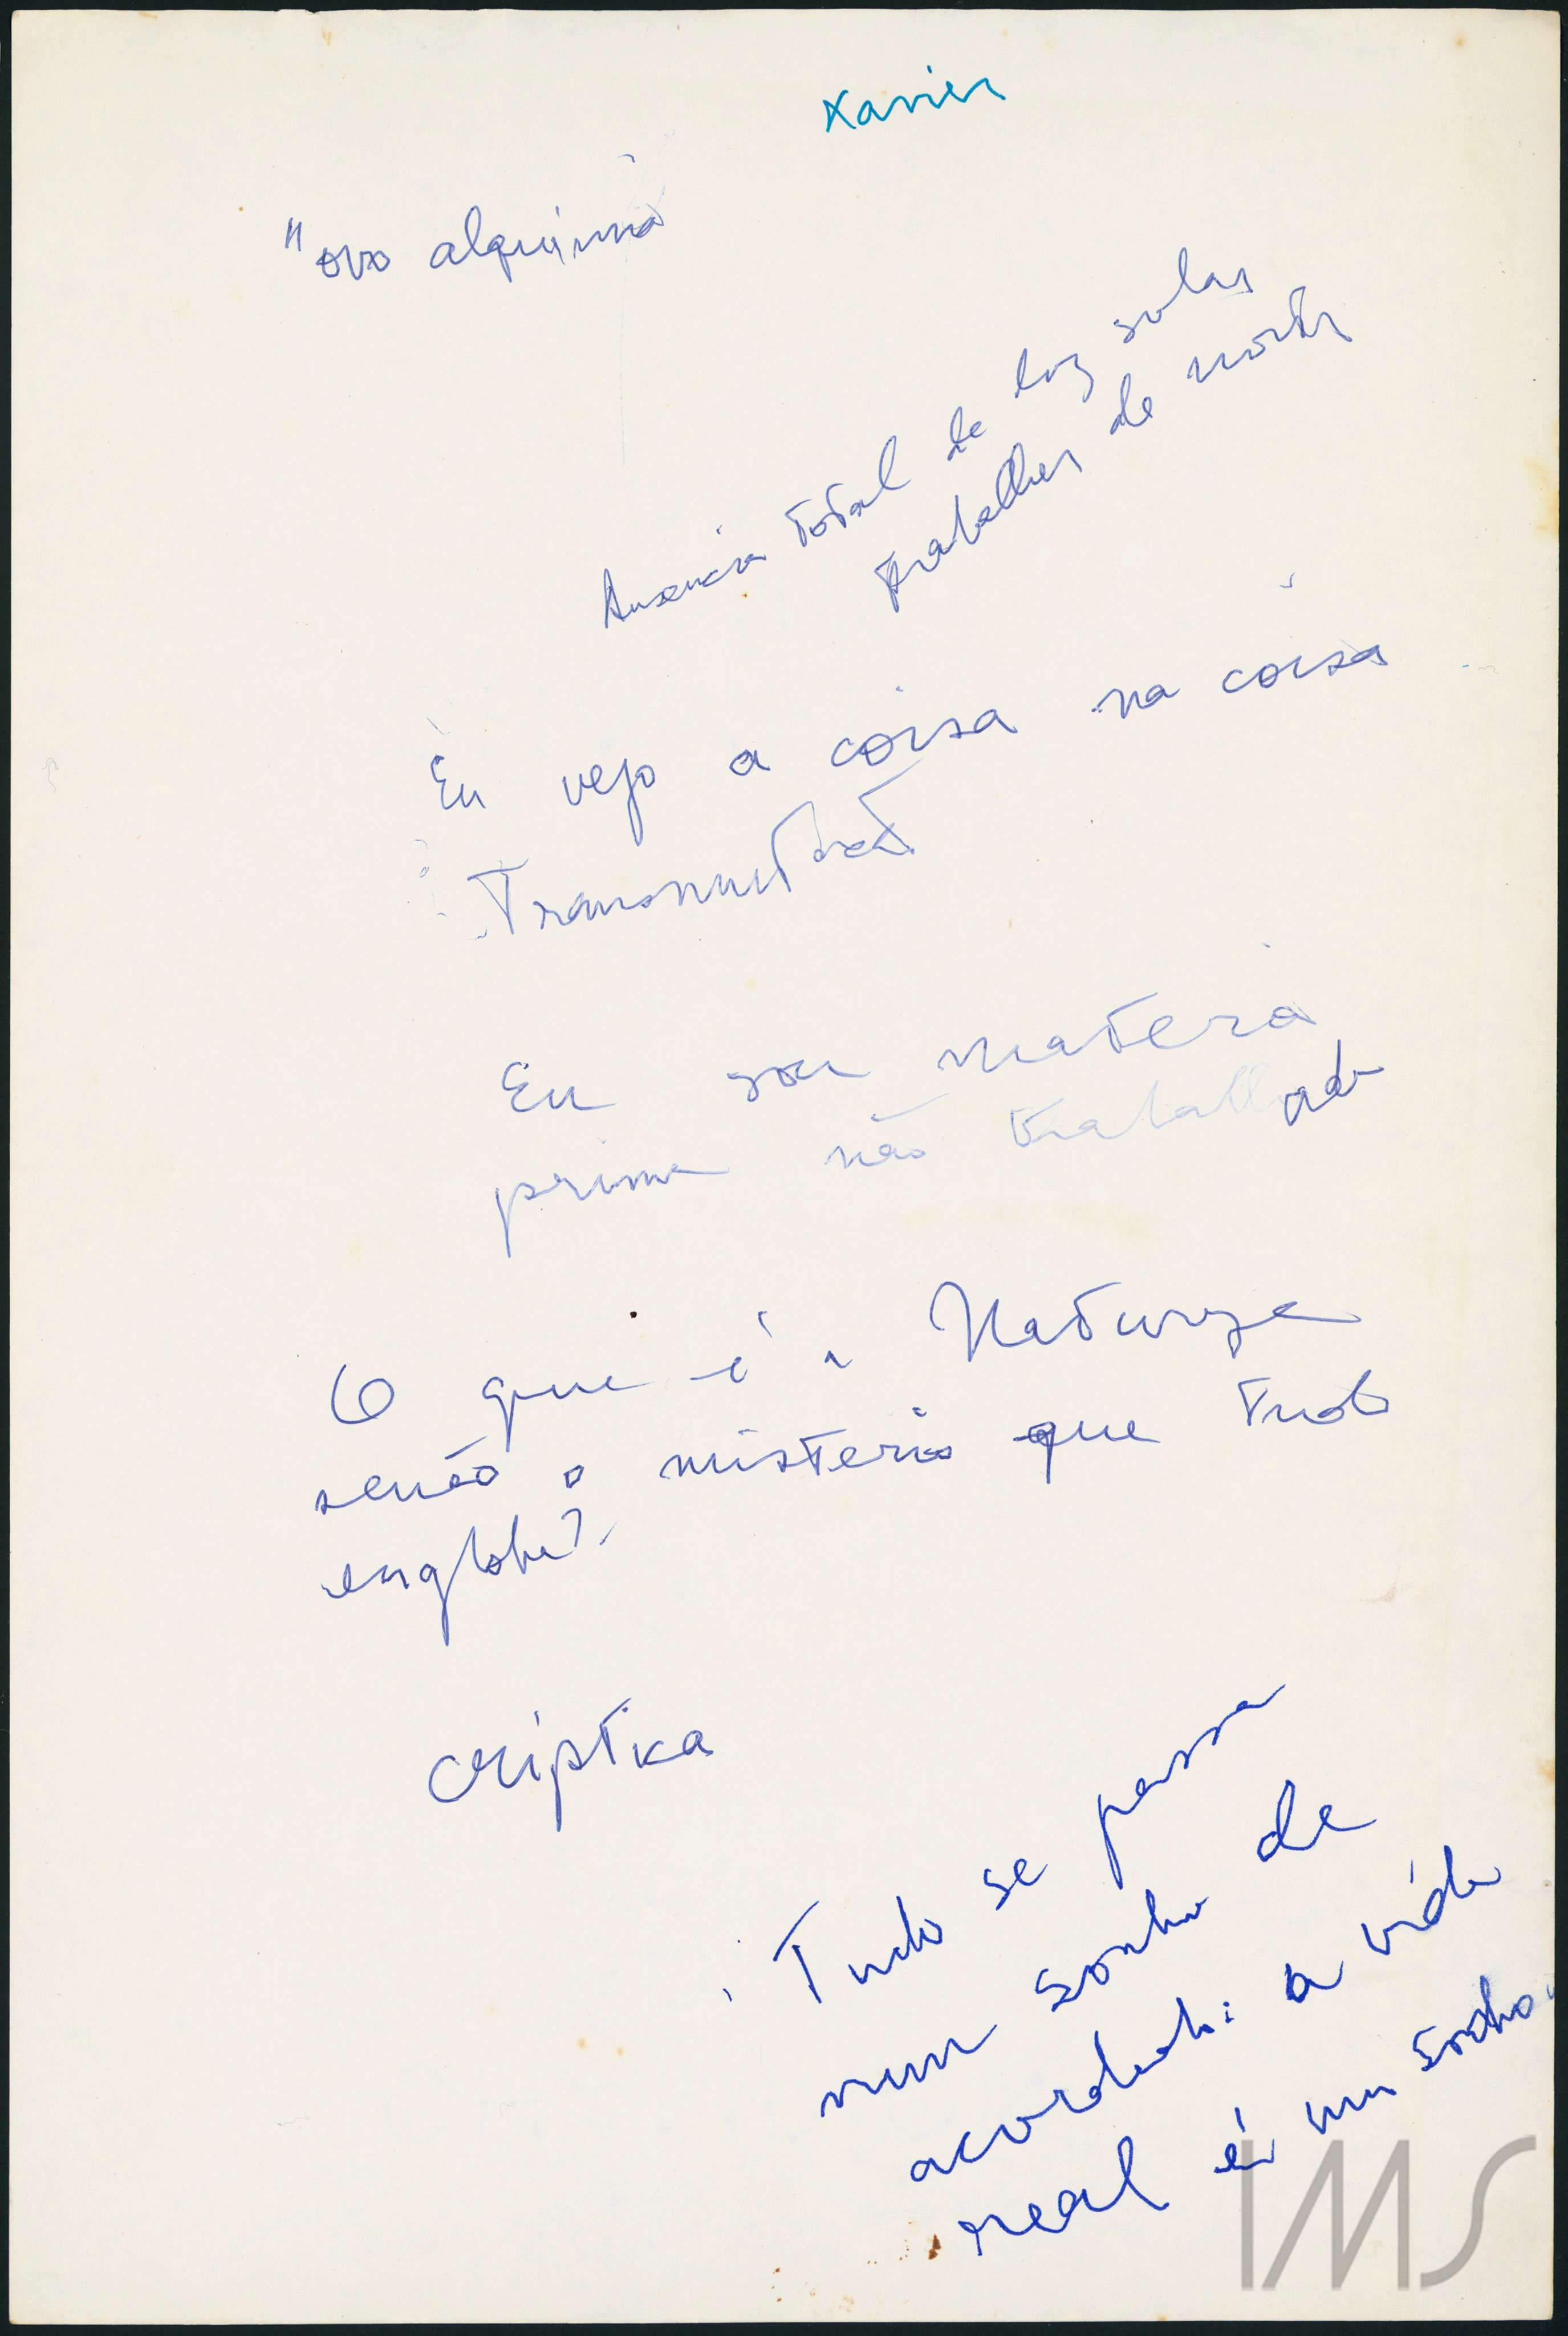 Xavier
"ovo alquimia
Ausencia total de luz solar
trabalhar de noite
Eu vejo a coisa na coisa
Transmutad
Eu sou materia
prima não trabalhada
O que é a Natureza
senão o misterio que tudo
engloba?
criptka
Tudo se passa
num sonho de
acordado: a vida
real é um sonho.
IMS